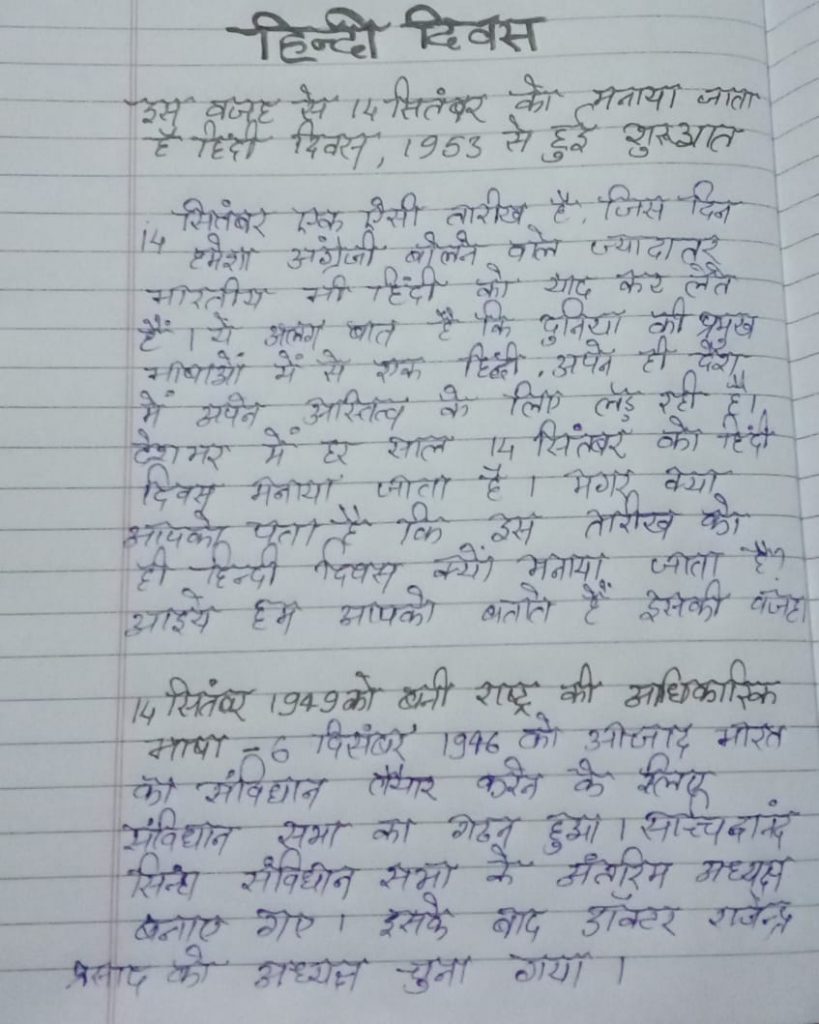 हिन्दी दिवस
इस वजह से 14 सितंबर को मनाया जाता
है हिंदी दिवस, 1953 से हुई शुरुआत
14 सितंबर एक ऐसी तारीख है, जिस दिन
हमेशा अंग्रेजी बोलने वाले ज्यादातर
भारतीय भी हिंदी को याद कर लेते
हैं । ये अलग बात है कि दुनिया की प्रमुख
भाषाओं में से एक हिंदी, अपने ही देश
में अपने अस्तित्व के लिए लड़ रही है।
देशभर में हर साल 14 सितंबर को हिंदी
दिवस मनाया जाता है । मगर क्या
आपको पता है कि इस तारीख को
ही हिन्दी दिवस क्यों मनाया जाता है?
आइये हम आपको बताते हैं इसकी वजह।
14 सितंबर 1949 को बनी राष्ट्र की आधिकारिक
भाषा - 6 दिसंबर 1946 को आजाद भारत
का संविधान तैयार करने के लिए
संविधान सभा का गठन हुआ । सच्चिदानंद
सिन्हा संविधान सभा के अंतरिम अध्यक्ष
बनाए गए । इसके बाद डॉक्टर राजेन्द्र
प्रसाद को अध्यक्ष चुना गया ।